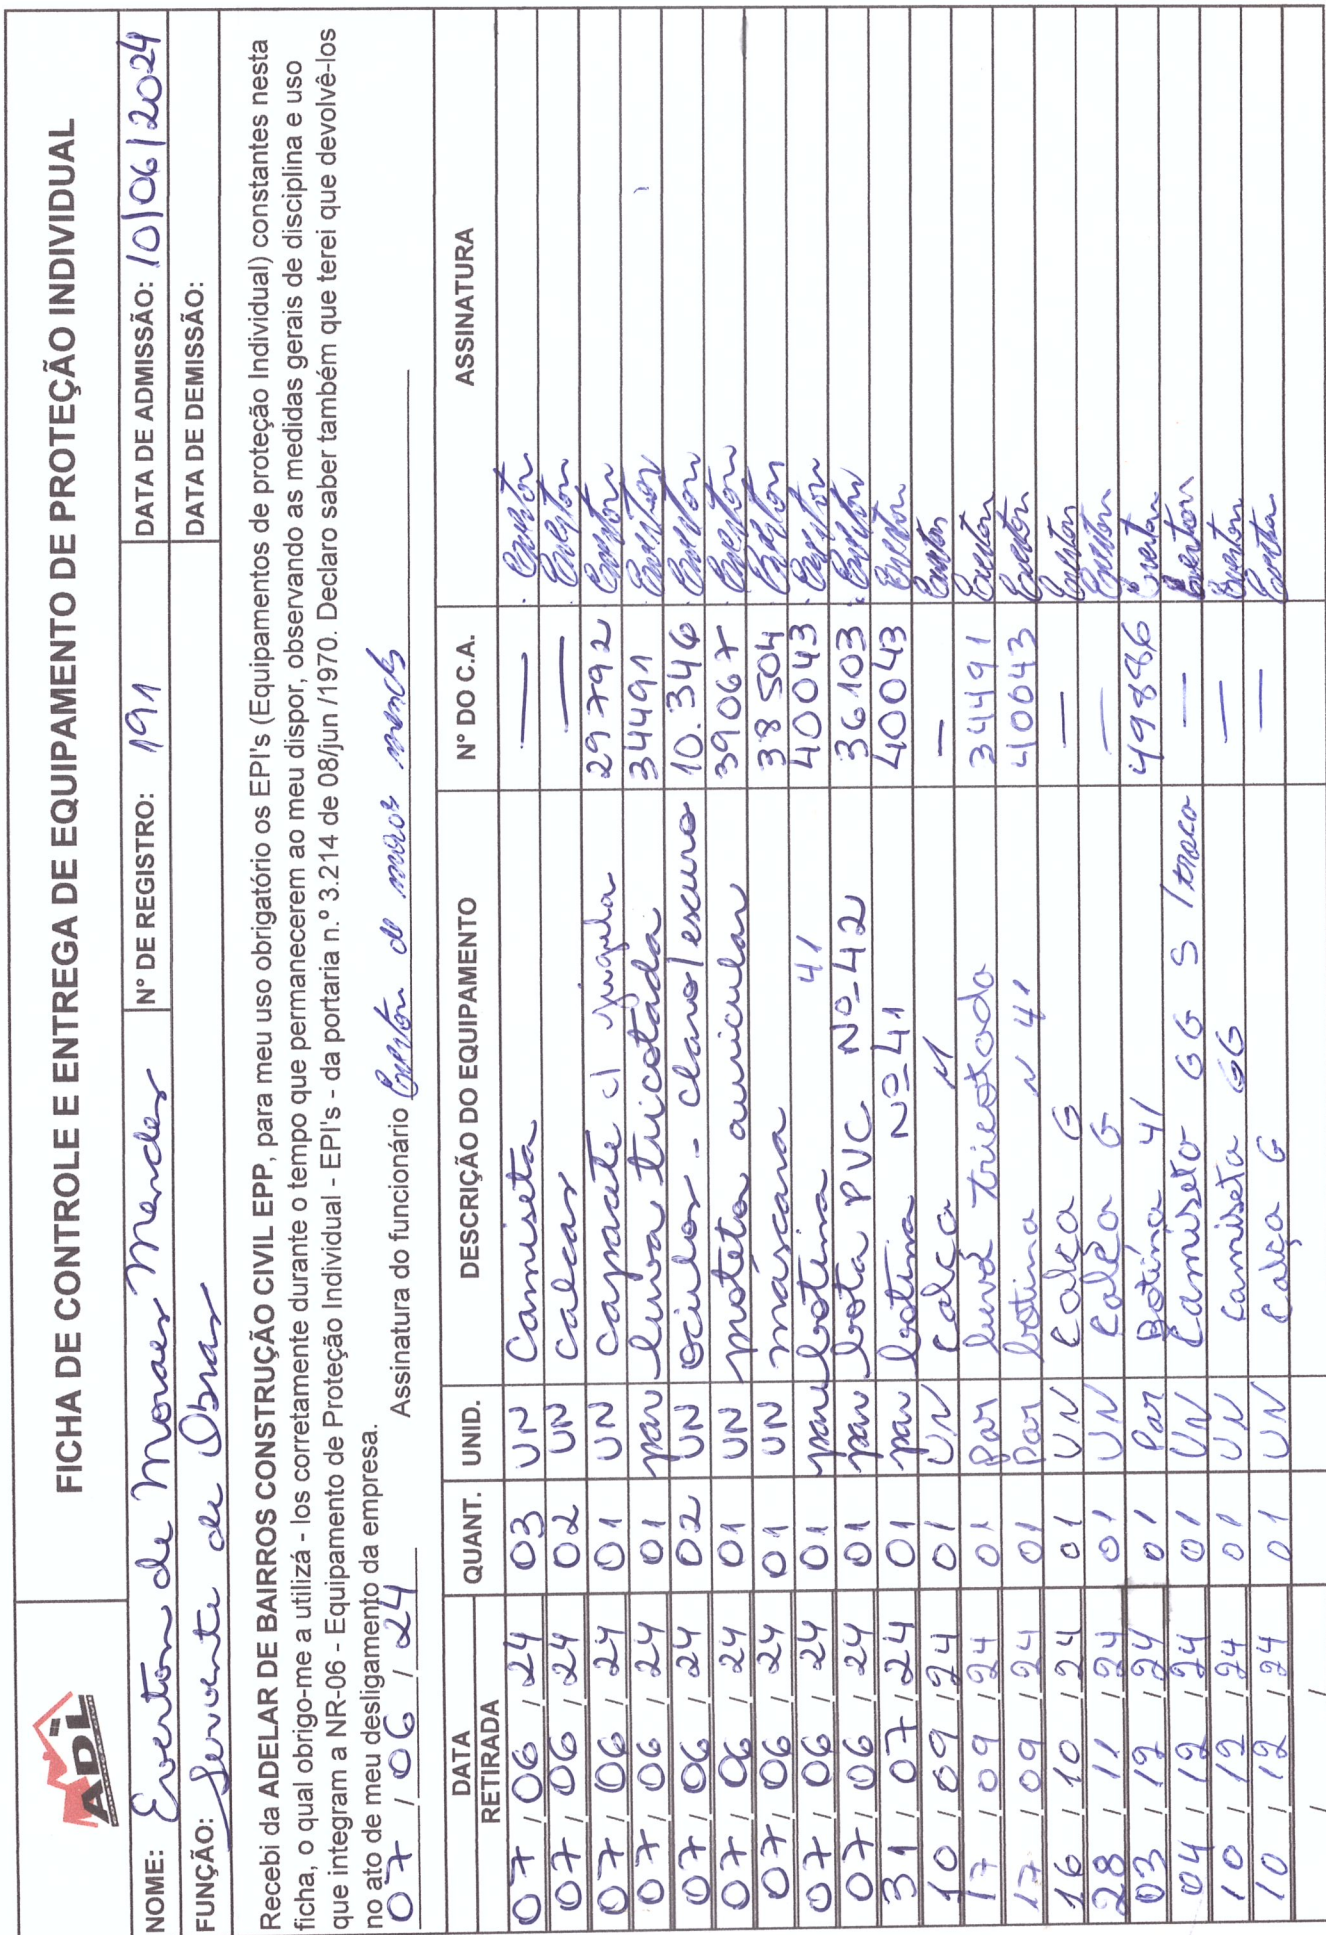 ADL
FICHA DE CONTROLE E ENTREGA DE EQUIPAMENTO DE PROTEÇÃO INDIVIDUAL
NOME: Everton de Moraes Mendes Nº DE REGISTRO: 191 DATA DE ADMISSÃO: 10/06/2024
FUNÇÃO: Servente de Obras DATA DE DEMISSÃO:
Recebi da ADELAR DE BAIRROS CONSTRUÇÃO CIVIL EPP, para meu uso obrigatório os EPI's (Equipamentos de proteção Individual) constantes nesta
ficha, o qual obrigo-me a utilizá - los corretamente durante o tempo que permanecerem ao meu dispor, observando as medidas gerais de disciplina e uso
que integram a NR-06 - Equipamento de Proteção Individual - EPI's - da portaria n.º 3.214 de 08/jun /1970. Declaro saber também que terei que devolvê-los
no ato de meu desligamento da empresa.
07 / 06 / 24 Assinatura do funcionário Everton de moraes mendes
DATA RETIRADA QUANT. UNID. DESCRIÇÃO DO EQUIPAMENTO Nº DO C.A. ASSINATURA
07 / 06 / 24 03 UN Camiseta — Everton
07 / 06 / 24 02 UN calcas — Everton
07 / 06 / 24 01 UN capacete c/ jugular 29792 Everton
07 / 06 / 24 01 par luva tricotada 34491 Everton
07 / 06 / 24 02 UN oculos - claro/escuro 10.346 Everton
07 / 06 / 24 01 UN protetor auricular 39067 Everton
07 / 06 / 24 01 UN máscara 38504 Everton
07 / 06 / 24 01 par botina 41 40043 Everton
07 / 06 / 24 01 par bota PVC Nº 42 36103 Everton
31 / 07 / 24 01 par botina Nº 41 40043 Everton
10 / 09 / 24 01 UN Calça M — Everton
17 / 09 / 24 01 Par luva tricotado 34491 Everton
17 / 09 / 24 01 Par botina N 41 40043 Everton
16 / 10 / 24 01 UN Calça G — Everton
28 / 11 / 24 01 UN Calça G — Everton
03 / 12 / 24 01 Par Botina 41 49886 Everton
04 / 12 / 24 01 UN Camiseta GG S/ — Everton
10 / 12 / 24 01 UN Camiseta GG — Everton
10 / 12 / 24 01 UN Calça G —
/ /